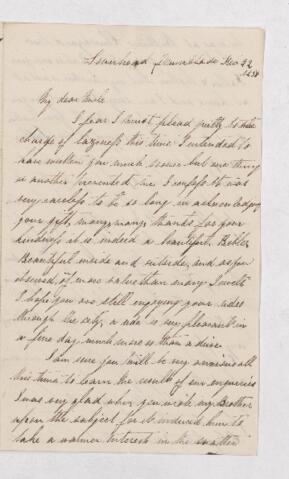 Dunblane Nov 22
My dear Uncle
I fear I must plead guilty to the
charge of lazyness this time I intended to
have written you much sooner but one thing
is another prevented me I confess it was
very careless to be so long in acknowledging
your gift, many, many thanks for your
kindness it is indeed a beautiful Bible
Beautiful inside and outside, and as you
observed, of more value than many Jewels
I hope you are still enjoying your rides
through the city, a ride is very pleasant in
a fine day, much more so than a drive.
I am sure you will be very anxious all
this time to learn the results of our enquiries
I was very glad when you wrote my Brother
upon the subject for it induced him to
take a warmer interest in the matter